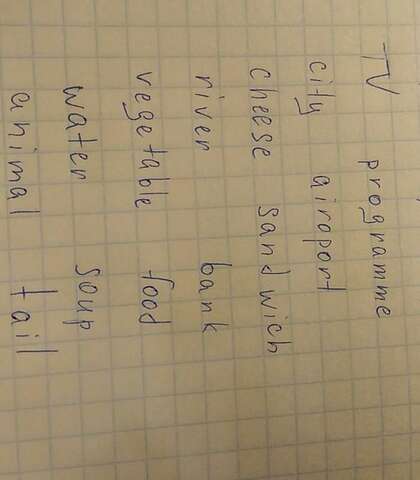 TV programme
city airoport
cheese sandwich
river bank
vegetable food
water soup
animal tail